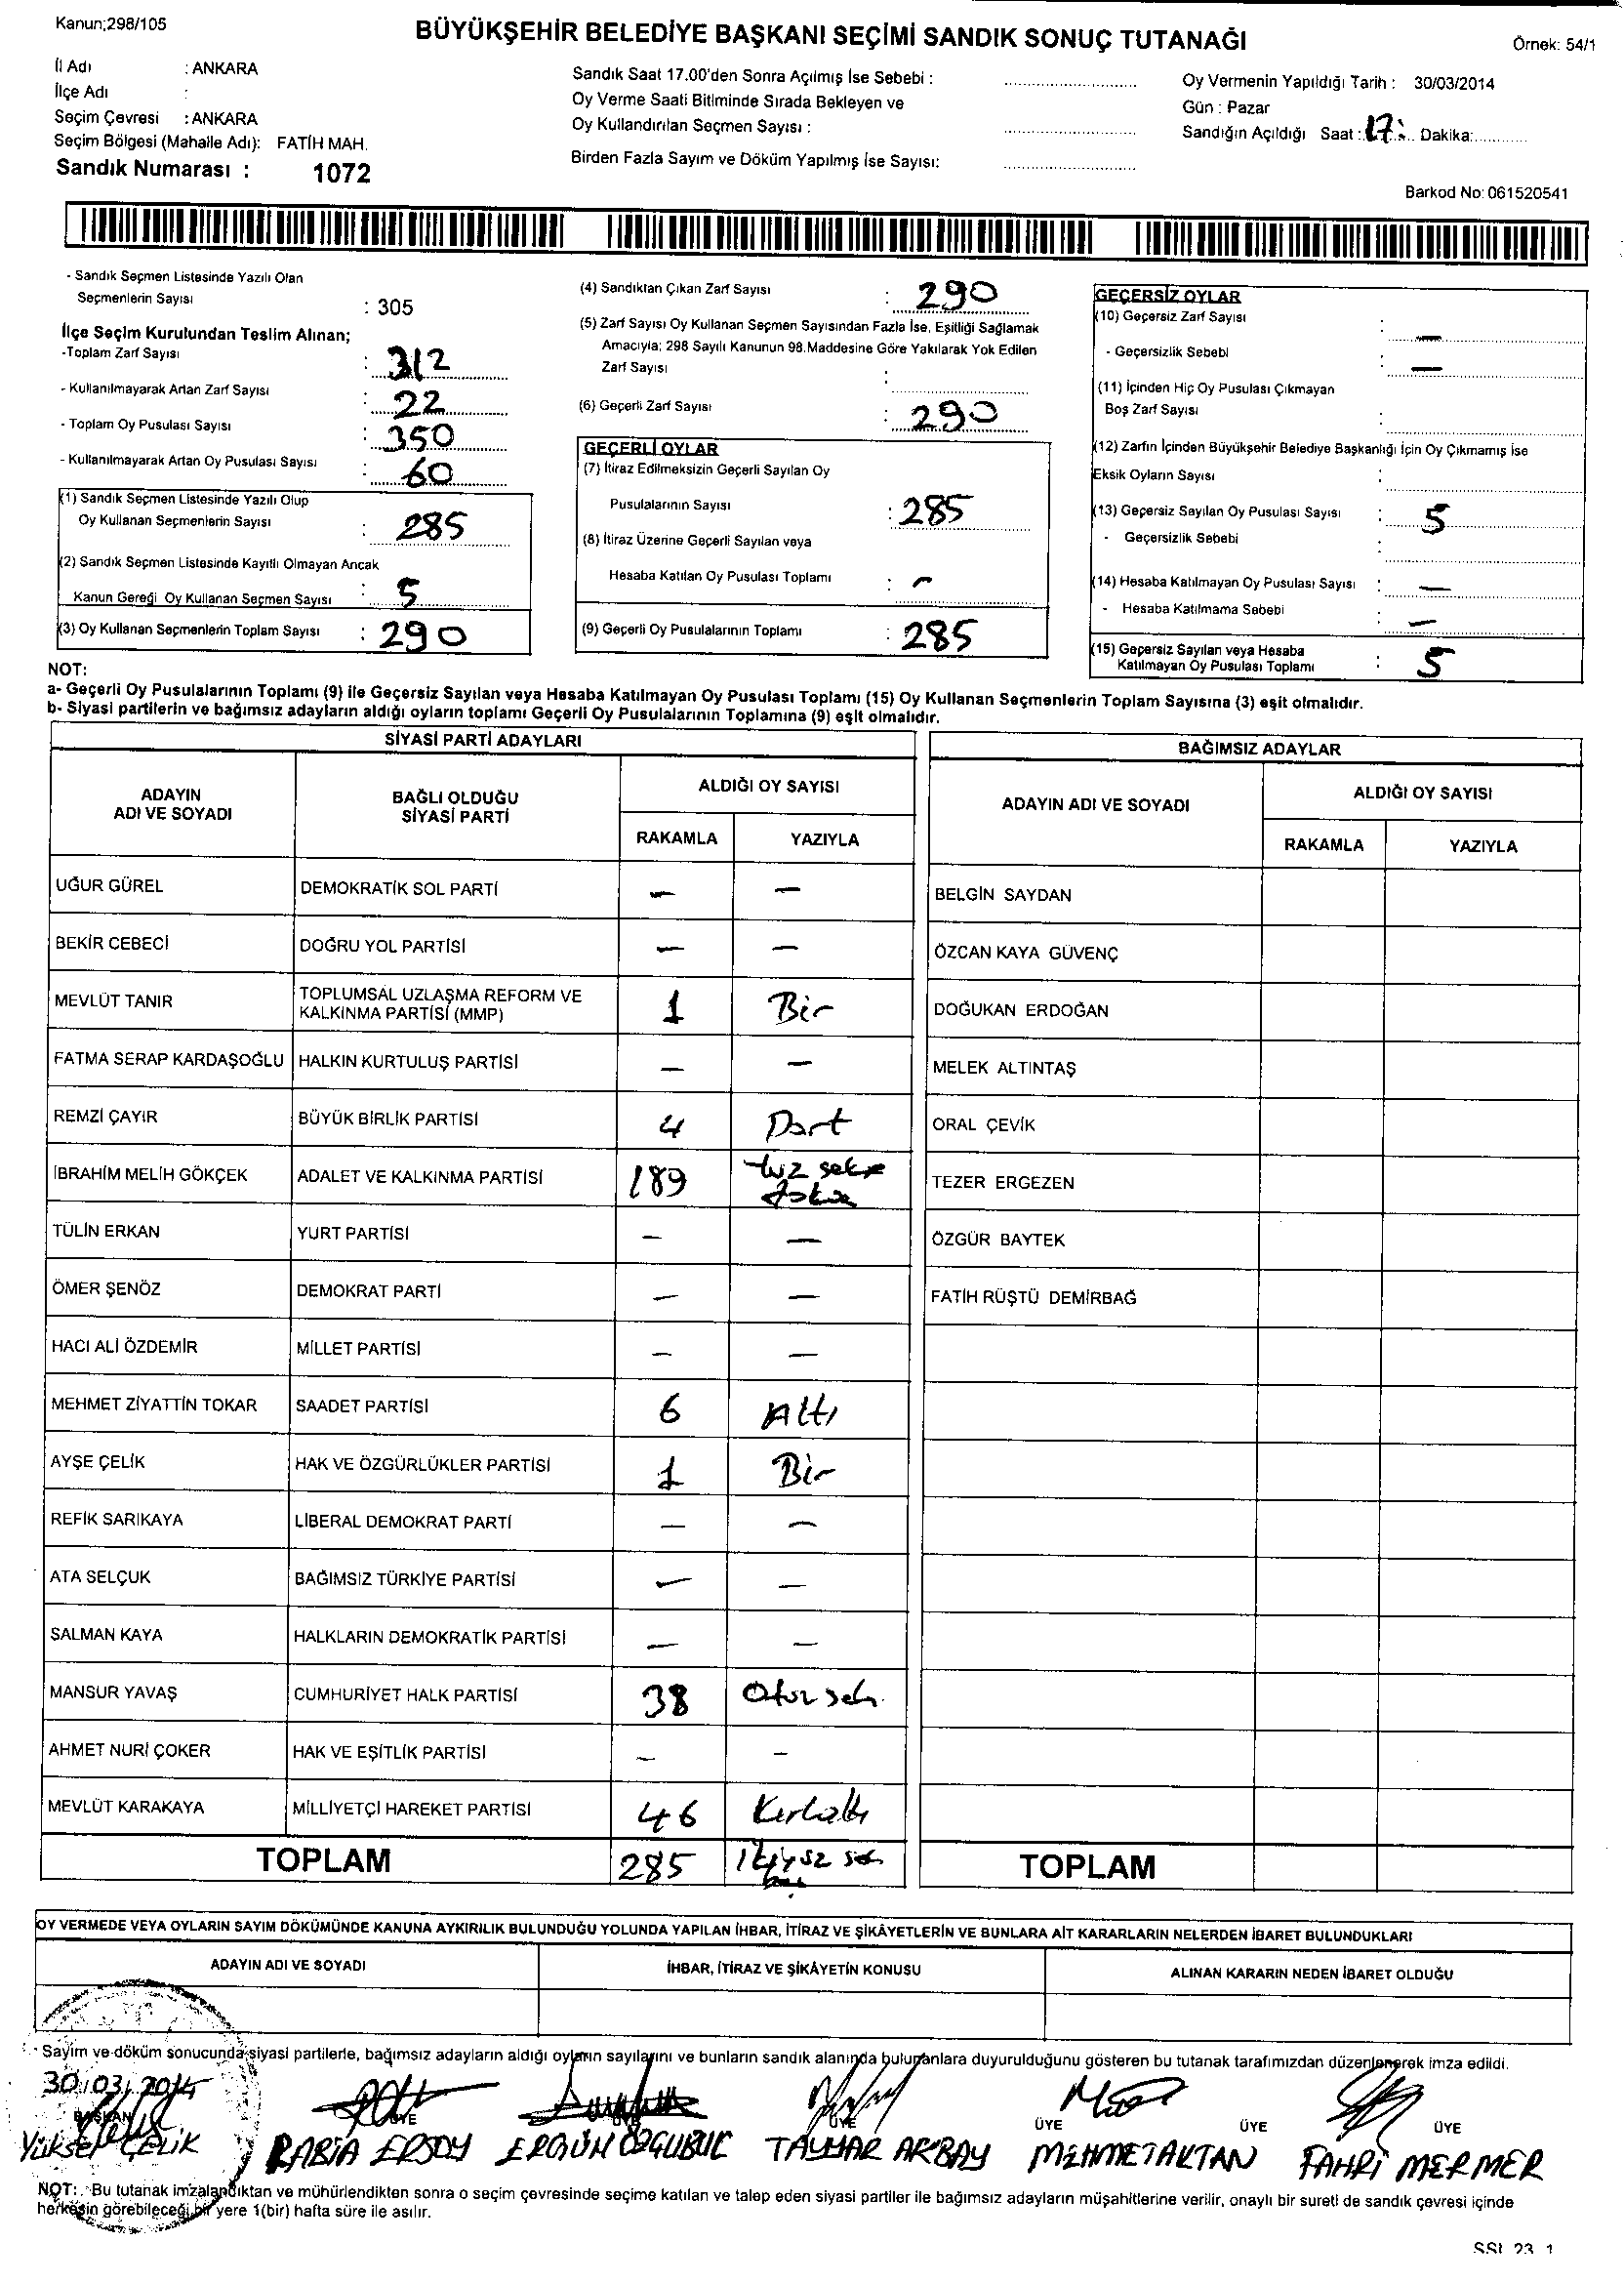 Kanun;298/105
BÜYÜKŞEHİR BELEDİYE BAŞKANI SEÇİMİ SANDIK SONUÇ TUTANAĞI
Örnek: 54/1
İl Adı : ANKARA
İlçe Adı :
Seçim Çevresi : ANKARA
Seçim Bölgesi (Mahalle Adı): FATİH MAH.
Sandık Numarası : 1072
Sandık Saat 17.00'den Sonra Açılmış İse Sebebi :
Oy Verme Saati Bitiminde Sırada Bekleyen ve
Oy Kullandırılan Seçmen Sayısı :
Birden Fazla Sayım ve Döküm Yapılmış İse Sayısı:
Oy Vermenin Yapıldığı Tarih : 30/03/2014
Gün : Pazar
Sandığın Açıldığı Saat : 17: Dakika:
Barkod No: 061520541
- Sandık Seçmen Listesinde Yazılı Olan
Seçmenlerin Sayısı : 305
İlçe Seçim Kurulundan Teslim Alınan;
-Toplam Zarf Sayısı : 312
- Kullanılmayarak Artan Zarf Sayısı : 22
- Toplam Oy Pusulası Sayısı : 350
- Kullanılmayarak Artan Oy Pusulası Sayısı : 60
(1) Sandık Seçmen Listesinde Yazılı Olup
Oy Kullanan Seçmenlerin Sayısı : 285
(2) Sandık Seçmen Listesinde Kayıtlı Olmayan Ancak
Kanun Gereği Oy Kullanan Seçmen Sayısı : 5
(3) Oy Kullanan Seçmenlerin Toplam Sayısı : 290
(4) Sandıktan Çıkan Zarf Sayısı : 290
(5) Zarf Sayısı Oy Kullanan Seçmen Sayısından Fazla İse, Eşitliği Sağlamak
Amacıyla; 298 Sayılı Kanunun 98.Maddesine Göre Yakılarak Yok Edilen
Zarf Sayısı :
(6) Geçerli Zarf Sayısı : 290
GEÇERLİ OYLAR
(7) İtiraz Edilmeksizin Geçerli Sayılan Oy
Pusulalarının Sayısı : 285
(8) İtiraz Üzerine Geçerli Sayılan veya
Hesaba Katılan Oy Pusulası Toplamı : -
(9) Geçerli Oy Pusulalarının Toplamı : 285
GEÇERSİZ OYLAR
(10) Geçersiz Zarf Sayısı : -
- Geçersizlik Sebebi : -
(11) İçinden Hiç Oy Pusulası Çıkmayan
Boş Zarf Sayısı :
(12) Zarfın İçinden Büyükşehir Belediye Başkanlığı İçin Oy Çıkmamış İse
Eksik Oyların Sayısı :
(13) Geçersiz Sayılan Oy Pusulası Sayısı : 5
- Geçersizlik Sebebi :
(14) Hesaba Katılmayan Oy Pusulası Sayısı : -
- Hesaba Katılmama Sebebi : -
(15) Geçersiz Sayılan veya Hesaba
Katılmayan Oy Pusulası Toplamı : 5
NOT:
a- Geçerli Oy Pusulalarının Toplamı (9) ile Geçersiz Sayılan veya Hesaba Katılmayan Oy Pusulası Toplamı (15) Oy Kullanan Seçmenlerin Toplam Sayısına (3) eşit olmalıdır.
b- Siyasi partilerin ve bağımsız adayların aldığı oyların toplamı Geçerli Oy Pusulalarının Toplamına (9) eşit olmalıdır.
SİYASİ PARTİ ADAYLARI
ADAYIN ADI VE SOYADI
BAĞLI OLDUĞU SİYASİ PARTİ
ALDIĞI OY SAYISI
RAKAMLA YAZIYLA
UĞUR GÜREL DEMOKRATİK SOL PARTİ - -
BEKİR CEBECİ DOĞRU YOL PARTİSİ - -
MEVLÜT TANIR TOPLUMSAL UZLAŞMA REFORM VE KALKINMA PARTİSİ (MMP) 1 Bir
FATMA SERAP KARDAŞOĞLU HALKIN KURTULUŞ PARTİSİ - -
REMZİ ÇAYIR BÜYÜK BİRLİK PARTİSİ 4 Dört
İBRAHİM MELİH GÖKÇEK ADALET VE KALKINMA PARTİSİ 189
TÜLİN ERKAN YURT PARTİSİ - -
ÖMER ŞENÖZ DEMOKRAT PARTİ - -
HACI ALİ ÖZDEMİR MİLLET PARTİSİ - -
MEHMET ZİYATTİN TOKAR SAADET PARTİSİ 6 Altı
AYŞE ÇELİK HAK VE ÖZGÜRLÜKLER PARTİSİ 1 Bir
REFİK SARIKAYA LİBERAL DEMOKRAT PARTİ - -
ATA SELÇUK BAĞIMSIZ TÜRKİYE PARTİSİ - -
SALMAN KAYA HALKLARIN DEMOKRATİK PARTİSİ - -
MANSUR YAVAŞ CUMHURİYET HALK PARTİSİ 38
AHMET NURİ ÇOKER HAK VE EŞİTLİK PARTİSİ - -
MEVLÜT KARAKAYA MİLLİYETÇİ HAREKET PARTİSİ 46 Kırkaltı
TOPLAM 285
BAĞIMSIZ ADAYLAR
ADAYIN ADI VE SOYADI
ALDIĞI OY SAYISI
RAKAMLA YAZIYLA
BELGİN SAYDAN
ÖZCAN KAYA GÜVENÇ
DOĞUKAN ERDOĞAN
MELEK ALTINTAŞ
ORAL ÇEVİK
TEZER ERGEZEN
ÖZGÜR BAYTEK
FATİH RÜŞTÜ DEMİRBAĞ
TOPLAM
OY VERMEDE VEYA OYLARIN SAYIM DÖKÜMÜNDE KANUNA AYKIRILIK BULUNDUĞU YOLUNDA YAPILAN İHBAR, İTİRAZ VE ŞİKÂYETLERİN VE BUNLARA AİT KARARLARIN NELERDEN İBARET BULUNDUKLARI
ADAYIN ADI VE SOYADI
İHBAR, İTİRAZ VE ŞİKÂYETİN KONUSU
ALINAN KARARIN NEDEN İBARET OLDUĞU
Sayım ve döküm sonucunda siyasi partilerle, bağımsız adayların aldığı oyların sayılarını ve bunların sandık alanında bulunanlara duyurulduğunu gösteren bu tutanak tarafımızdan düzenlenerek imza edildi.
30/03/2014
BAŞKAN ÜYE ÜYE ÜYE ÜYE ÜYE ÜYE
Yüksel ÇELİK RABİA ERSOY ERGÜN ÖZGUBUC TAYYAR AKBAY MEHMET AKTAN FAHRİ MERMER
NOT: Bu tutanak imzalandıktan ve mühürlendikten sonra o seçim çevresinde seçime katılan ve talep eden siyasi partiler ile bağımsız adayların müşahitlerine verilir, onaylı bir sureti de sandık çevresi içinde
herkesin görebileceği bir yere 1(bir) hafta süre ile asılır.